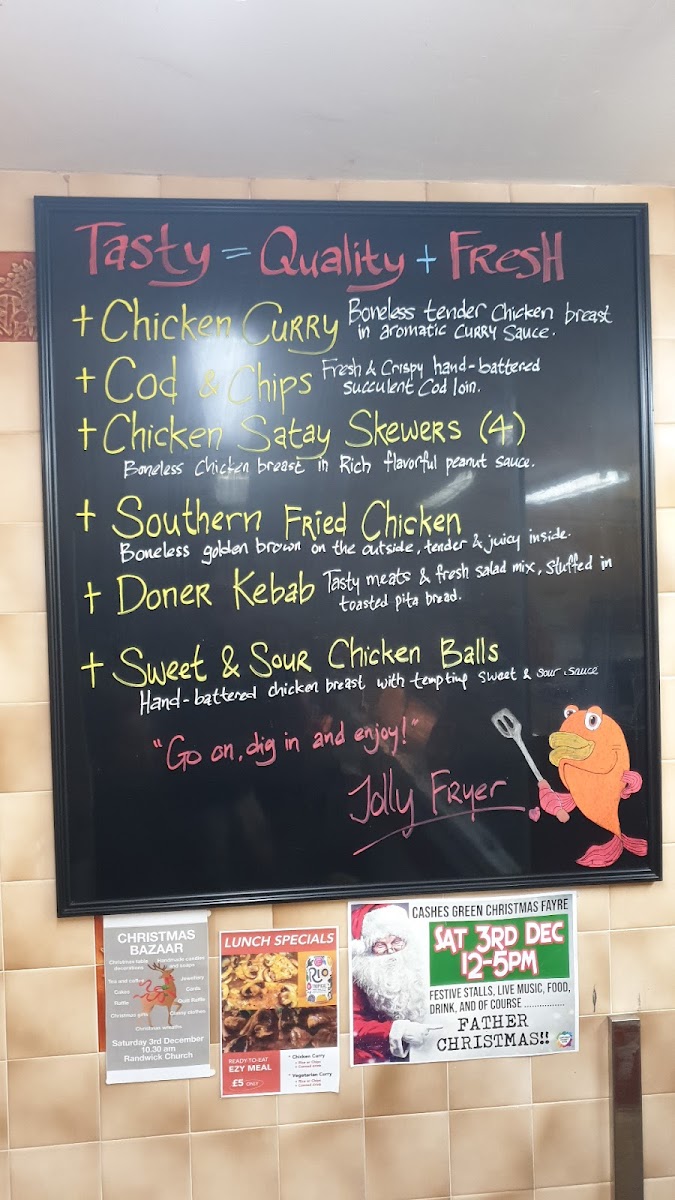 Tasty = Quality + Fresh
+ Chicken Curry Boneless tender chicken breast
in aromatic curry sauce.
+ Cod & Chips Fresh & Crispy hand-battered
succulent Cod loin.
+ Chicken Satay Skewers (4)
Boneless chicken breast in Rich flavorful peanut sauce.
+ Southern Fried Chicken
Boneless golden brown on the outside, tender & juicy inside.
+ Doner Kebab Tasty meats & fresh salad mix, stuffed in
toasted pita bread.
+ Sweet & Sour Chicken Balls
Hand-battered chicken breast with tempting sweet & sour sauce
"Go on, dig in and enjoy!"
Jolly Fryer
CHRISTMAS
BAZAAR
Christmas table decorations
Handmade candles and soaps
Tea and coffee
Jewellery
Cakes
Cards
Raffle
Quilt Raffle
Christmas gifts
Christmas wreaths
Saturday 3rd December
10.30 am
Randwick Church
LUNCH SPECIALS
RIO
READY-TO-EAT
EZY MEAL
£5 ONLY
• Chicken Curry
+ Rice or Chips
+ Canned drink
• Vegetarian Curry
+ Rice or Chips
+ Canned drink
CASHES GREEN CHRISTMAS FAYRE
SAT 3RD DEC
12-5PM
FESTIVE STALLS, LIVE MUSIC, FOOD,
DRINK, AND OF COURSE ................
FATHER
CHRISTMAS!!